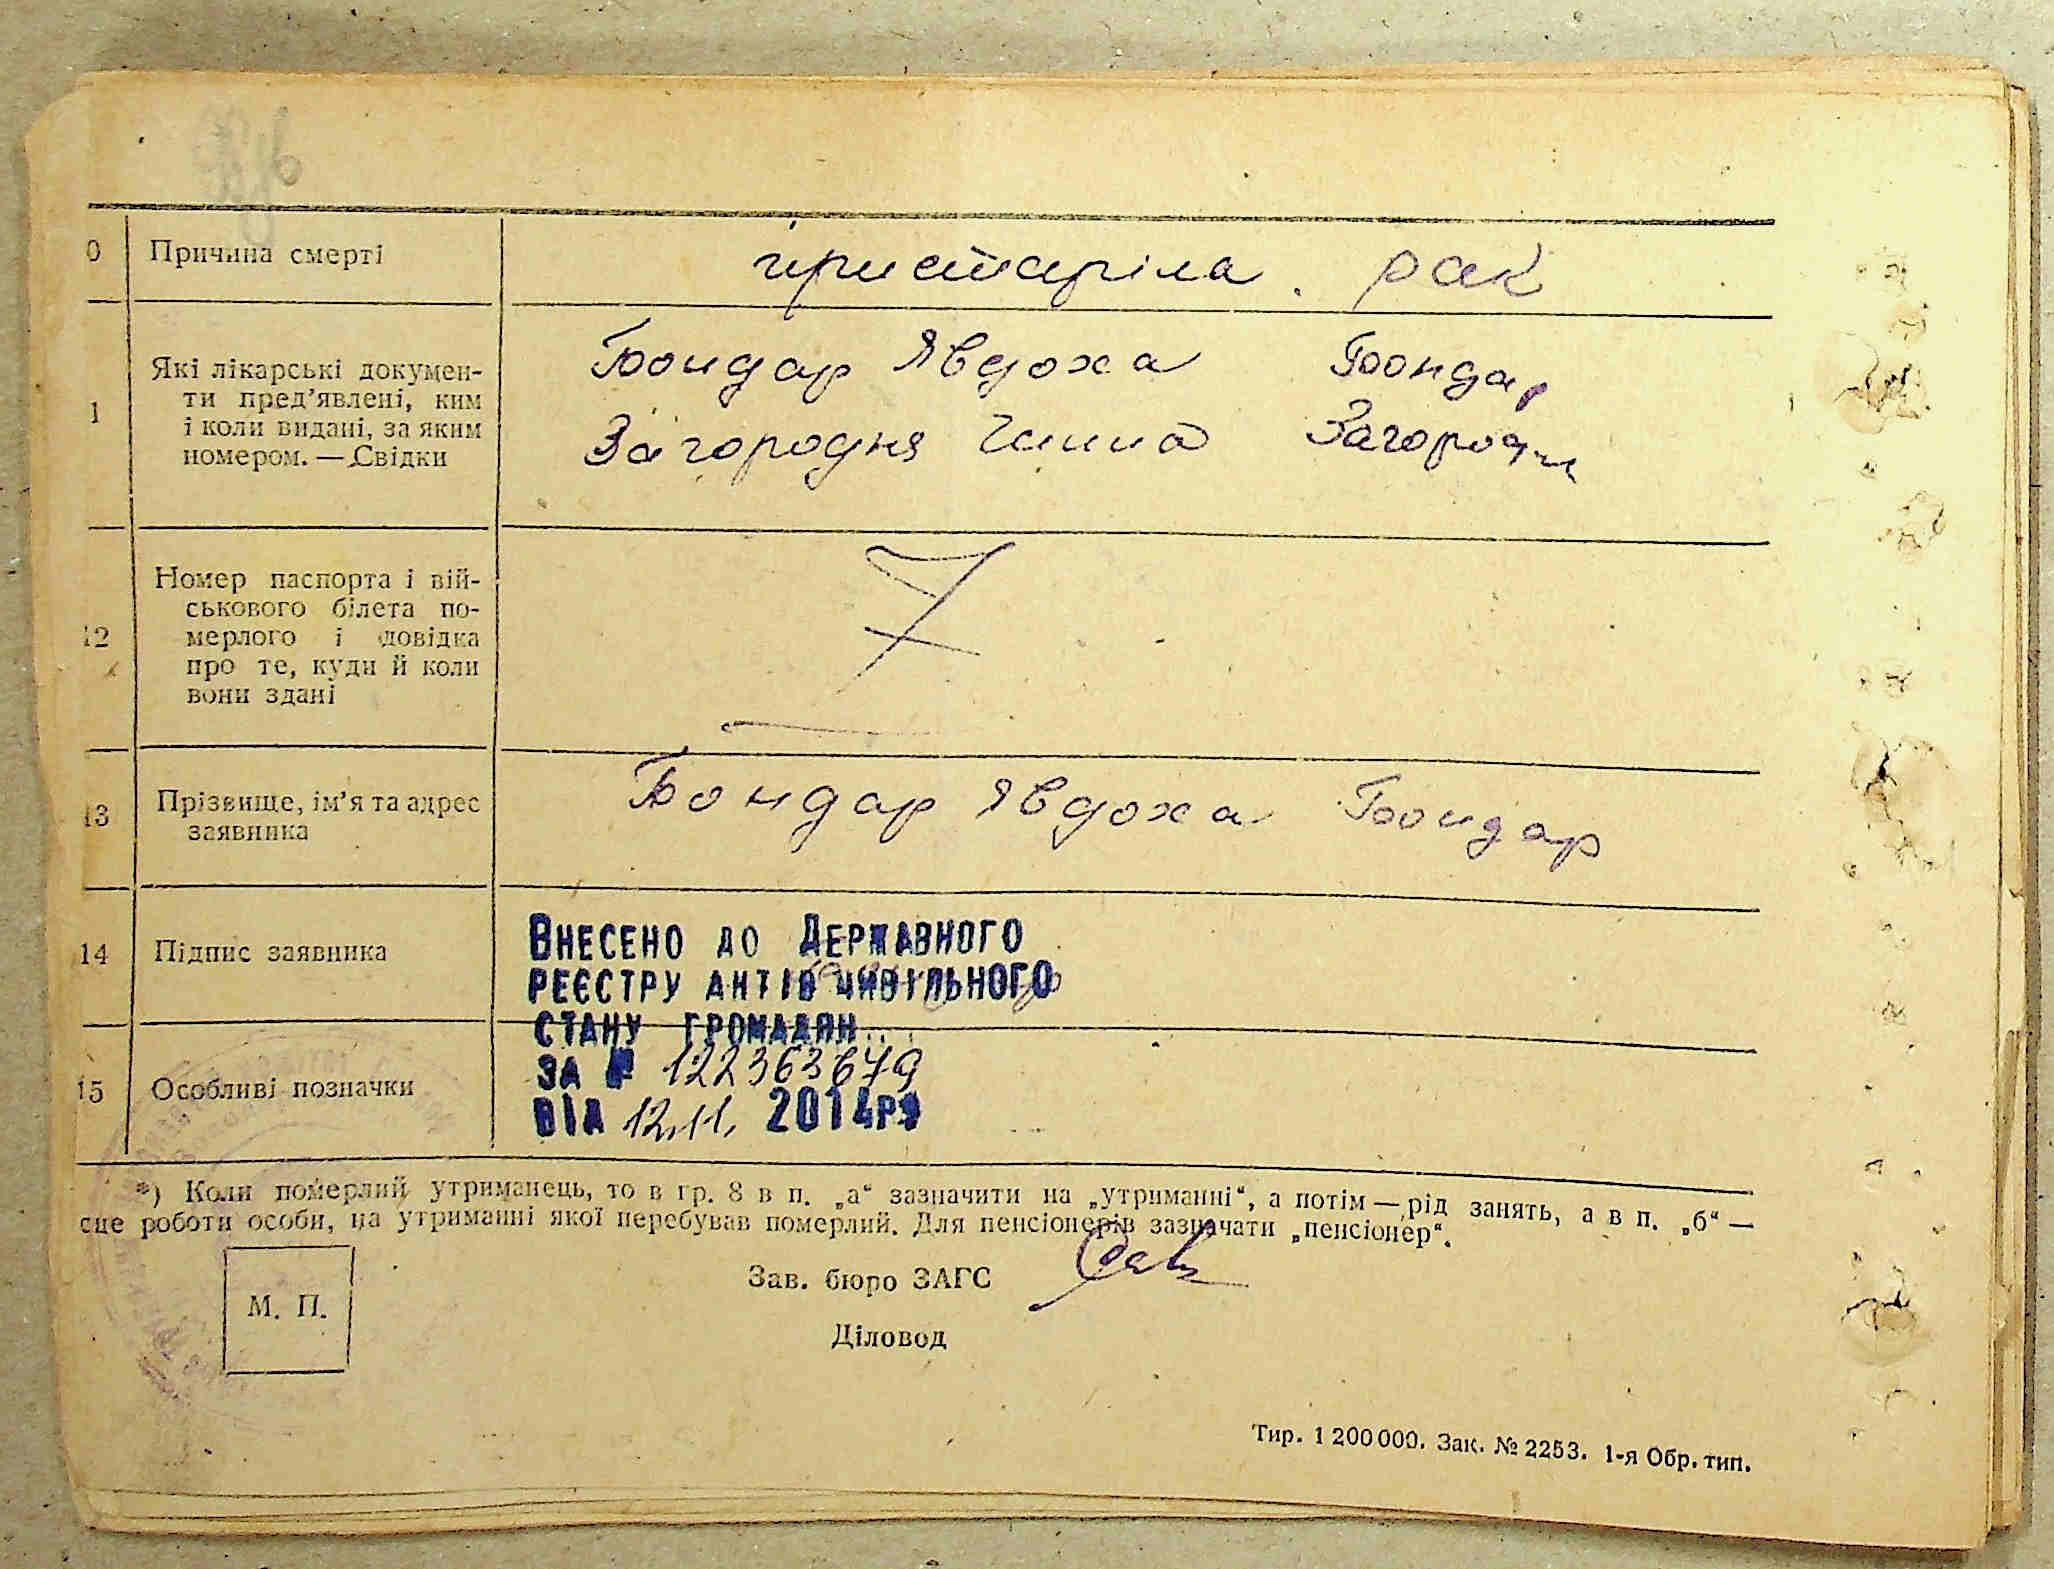 0 Причина смерті пристаріла. рак
1 Які лікарські докумен-
ти пред’явлені, ким
і коли видані, за яким
номером. — Свідки
Бондар Явдоха Бондар
Загородня Ганна Загородн
12 Номер паспорта і вій-
ськового білета по-
мерлого і довідка
про те, куди й коли
вони здані
13 Прізвище, ім’я та адрес
заявника
Бондар Явдоха Бондар
14 Підпис заявника
ВНЕСЕНО ДО ДЕРЖАВНОГО
РЕЄСТРУ АКТІВ ЦИВІЛЬНОГО
СТАНУ ГРОМАДЯН
ЗА № 122363679
ВІД 12.11. 2014р
15 Особливі позначки
*) Коли померлий утриманець, то в гр. 8 в п. „а“ зазначити на „утриманні“, а потім — рід занять, а в п. „б“ —
сце роботи особи, на утриманні якої перебував померлий. Для пенсіонерів зазначати „пенсіонер“.
М. П.
Зав. бюро ЗАГС
Діловод
Тир. 1 200 000. Зак. № 2253. 1-я Обр. тип.